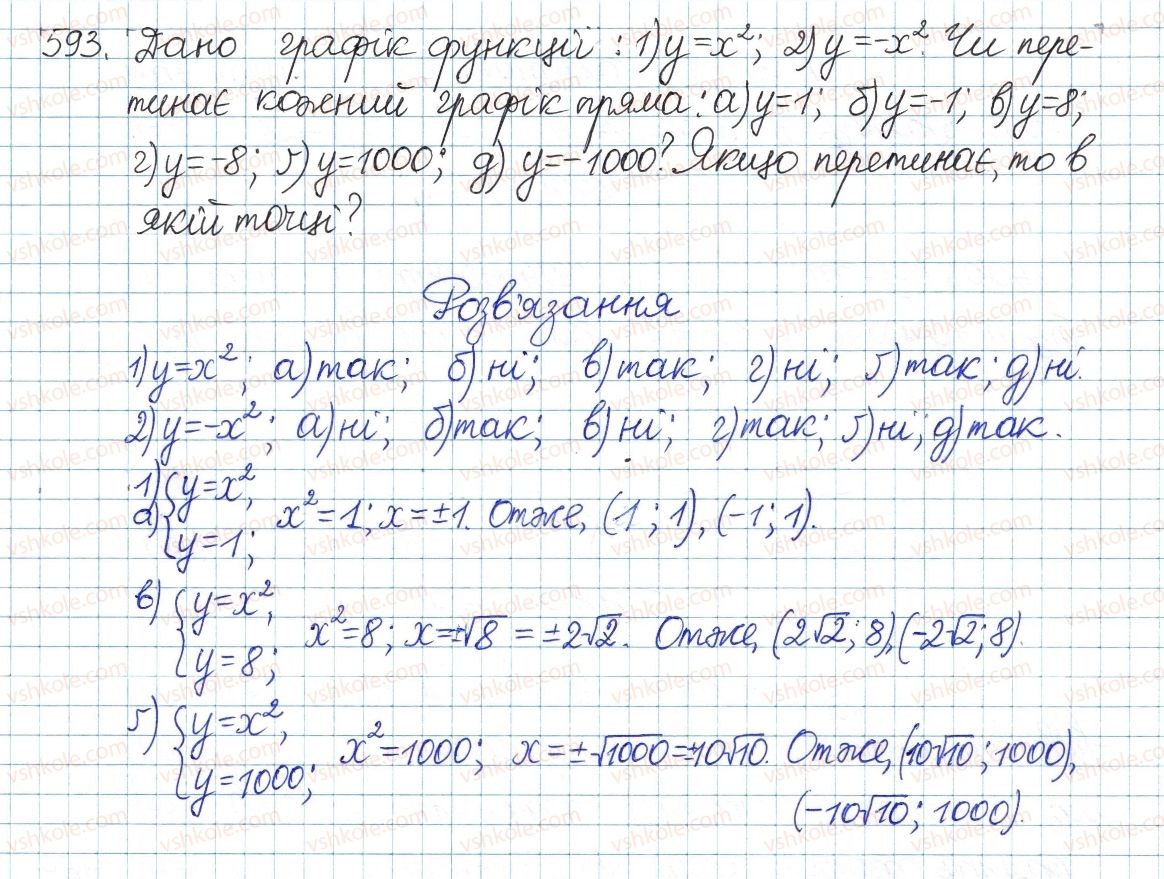 593. Дано графік функції: 1) y=x²; 2) y=-x². Чи пере-
тинає кожний графік пряма: а) y=1; б) y=-1; в) y=8;
г) y=-8; ґ) y=1000; д) y=-1000? Якщо перетинає, то в
якій точці?
Розв'язання
1) y=x²; а) так; б) ні; в) так; г) ні; ґ) так; д) ні.
2) y=-x²; а) ні; б) так; в) ні; г) так; ґ) ні; д) так.
1) { y=x²,
а) { y=1; x²=1; x=±1. Отже, (1; 1), (-1; 1).
в) { y=x²,
{ y=8; x²=8; x=±√8=±2√2. Отже, (2√2; 8), (-2√2; 8).
ґ) { y=x²,
{ y=1000; x²=1000; x=±√1000=±10√10. Отже, (10√10; 1000),
(-10√10; 1000).